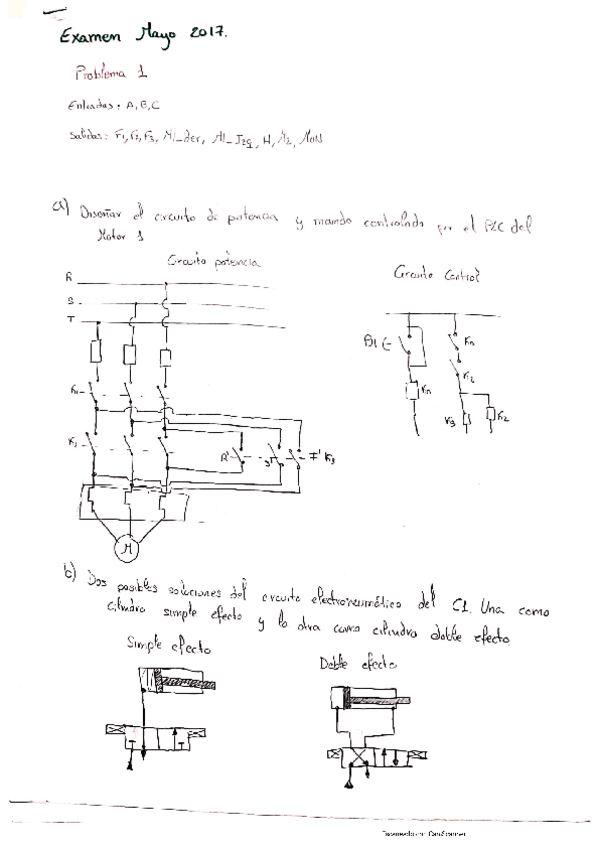 Examen Mayo 2017.
Problema 1
Entradas: A, B, C
Salidas: F1, F2, F3, M1_der, M1_Izq, H, M2,
a) Diseñar el circuito de potencia y mando controlado por el PLC del
Motor 1
Circuito potencia
Circuito Control
R
S
T
K1
R'
S'
T'
K3
M
B1
Kn
Kn
K2
K3
K2
b) Dos posibles soluciones del circuito electroneumático del C1. Una como
cilindro simple efecto y la otra como cilindro doble efecto.
Simple efecto
Doble efecto
Escaneado con CamScanner